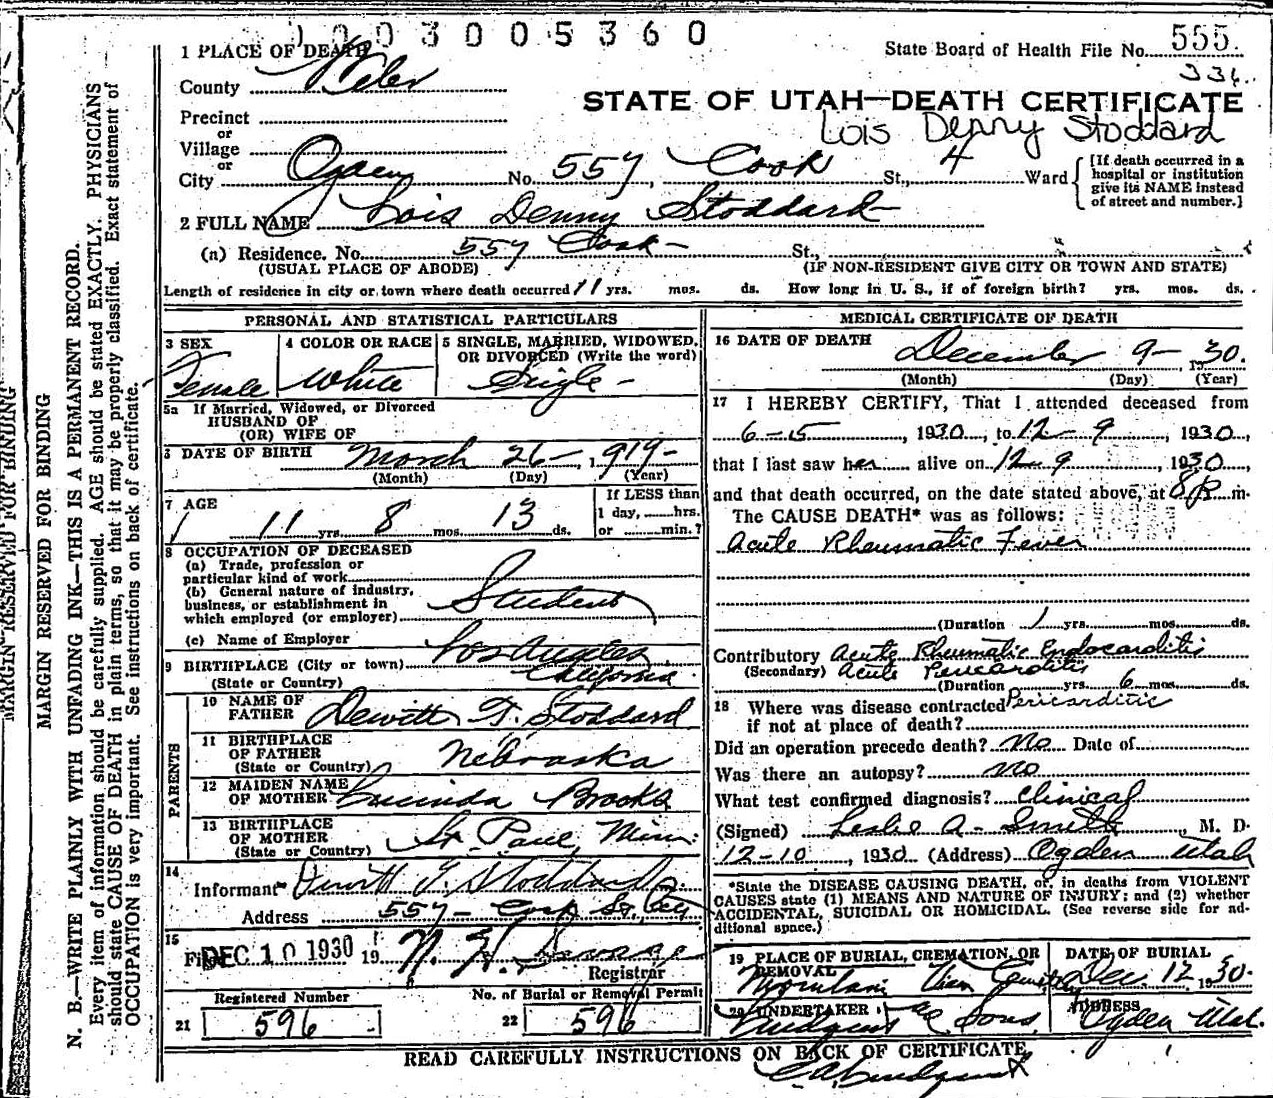 1003005360
1 PLACE OF DEATH
State Board of Health File No. 555.
336.
County Weber
STATE OF UTAH—DEATH CERTIFICATE
Precinct
or
Lois Denny Stoddard
Village
or
City Ogden No. 557, Cook St., 4 Ward
[If death occurred in a
hospital or institution
give its NAME instead
of street and number.]
2 FULL NAME Lois Denny Stoddard
(a) Residence. No. 557 Cook - St.,
(USUAL PLACE OF ABODE) (IF NON-RESIDENT GIVE CITY OR TOWN AND STATE)
Length of residence in city or town where death occurred 11 yrs. mos. ds. How long in U. S., if of foreign birth? yrs. mos. ds.
PERSONAL AND STATISTICAL PARTICULARS
3 SEX 4 COLOR OR RACE 5 SINGLE, MARRIED, WIDOWED,
OR DIVORCED (Write the word)
Female White Single -
5a If Married, Widowed, or Divorced
HUSBAND OF
(OR) WIFE OF
6 DATE OF BIRTH March 26-, 1919-
(Month) (Day) (Year)
7 AGE
11 yrs. 8 mos. 13 ds.
If LESS than
1 day, hrs.
or min.?
8 OCCUPATION OF DECEASED
(a) Trade, profession or
particular kind of work
(b) General nature of industry,
business, or establishment in
which employed (or employer) Student
(c) Name of Employer
9 BIRTHPLACE (City or town) Los Angeles
(State or Country) California
PARENTS
10 NAME OF
FATHER Dewitt T. Stoddard
11 BIRTHPLACE
OF FATHER
(State or Country) Nebraska
12 MAIDEN NAME
OF MOTHER Lucinda Brooks
13 BIRTHPLACE
OF MOTHER
(State or Country) St. Paul, Minn.
14
Informant Dewitt T. Stoddard
Address 557 - Cook St., City
15
Filed DEC 10 1930 19 N. H. Savage
Registrar
Registered Number No. of Burial or Removal Permit
21 596 22 596
MEDICAL CERTIFICATE OF DEATH
16 DATE OF DEATH
December 9-, 1930.
(Month) (Day) (Year)
17 I HEREBY CERTIFY, That I attended deceased from
6-15, 1930, to 12-9, 1930,
that I last saw her alive on 12-9, 1930,
and that death occurred, on the date stated above, at 8 P. m.
The CAUSE DEATH* was as follows:
Acute Rheumatic Fever
(Duration 1 yrs. mos. ds.
Contributory Acute Rheumatic Endocarditis
(Secondary) Acute Pericarditis
(Duration yrs. 6 mos. ds.
18 Where was disease contracted Pericarditis
if not at place of death?
Did an operation precede death? No Date of
Was there an autopsy? no
What test confirmed diagnosis? Clinical
(Signed) Leslie A. Smith, M. D.
12-10, 1930 (Address) Ogden Utah
*State the DISEASE CAUSING DEATH, or, in deaths from VIOLENT
CAUSES state (1) MEANS AND NATURE OF INJURY; and (2) whether
ACCIDENTAL, SUICIDAL OR HOMICIDAL. (See reverse side for ad-
ditional space.)
19 PLACE OF BURIAL, CREMATION, OR
REMOVAL
Mountain View Cemetery
DATE OF BURIAL
Dec. 12 1930.
20 UNDERTAKER & Sons,
ADDRESS
Ogden Utah.
READ CAREFULLY INSTRUCTIONS ON BACK OF CERTIFICATE
MARGIN RESERVED FOR BINDING
MARGIN RESERVED FOR BINDING
N. B.—WRITE PLAINLY WITH UNFADING INK—THIS IS A PERMANENT RECORD.
Every item of information should be carefully supplied. AGE should be stated EXACTLY. PHYSICIANS
should state CAUSE OF DEATH in plain terms, so that it may be properly classified. Exact statement of
OCCUPATION is very important. See instructions on back of certificate.